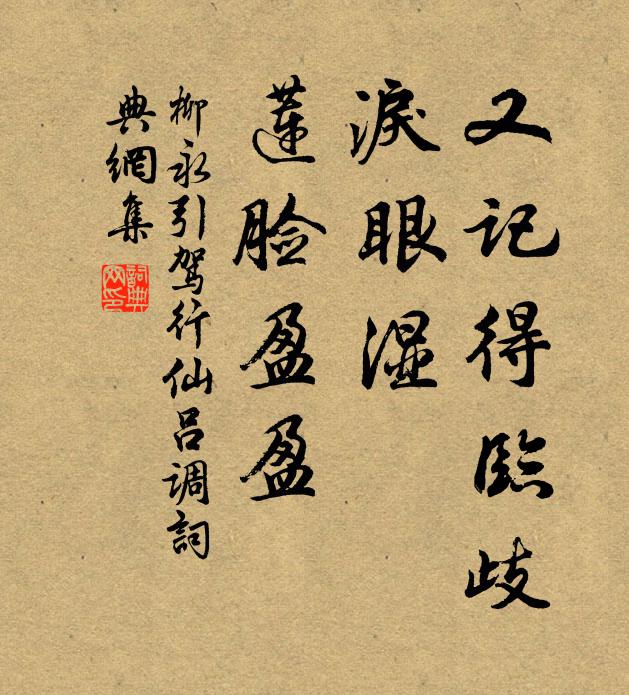 又记得临歧
淚眼湿
莲脸盈盈
柳永引驾行仙吕调詞
典網集
詞典网印